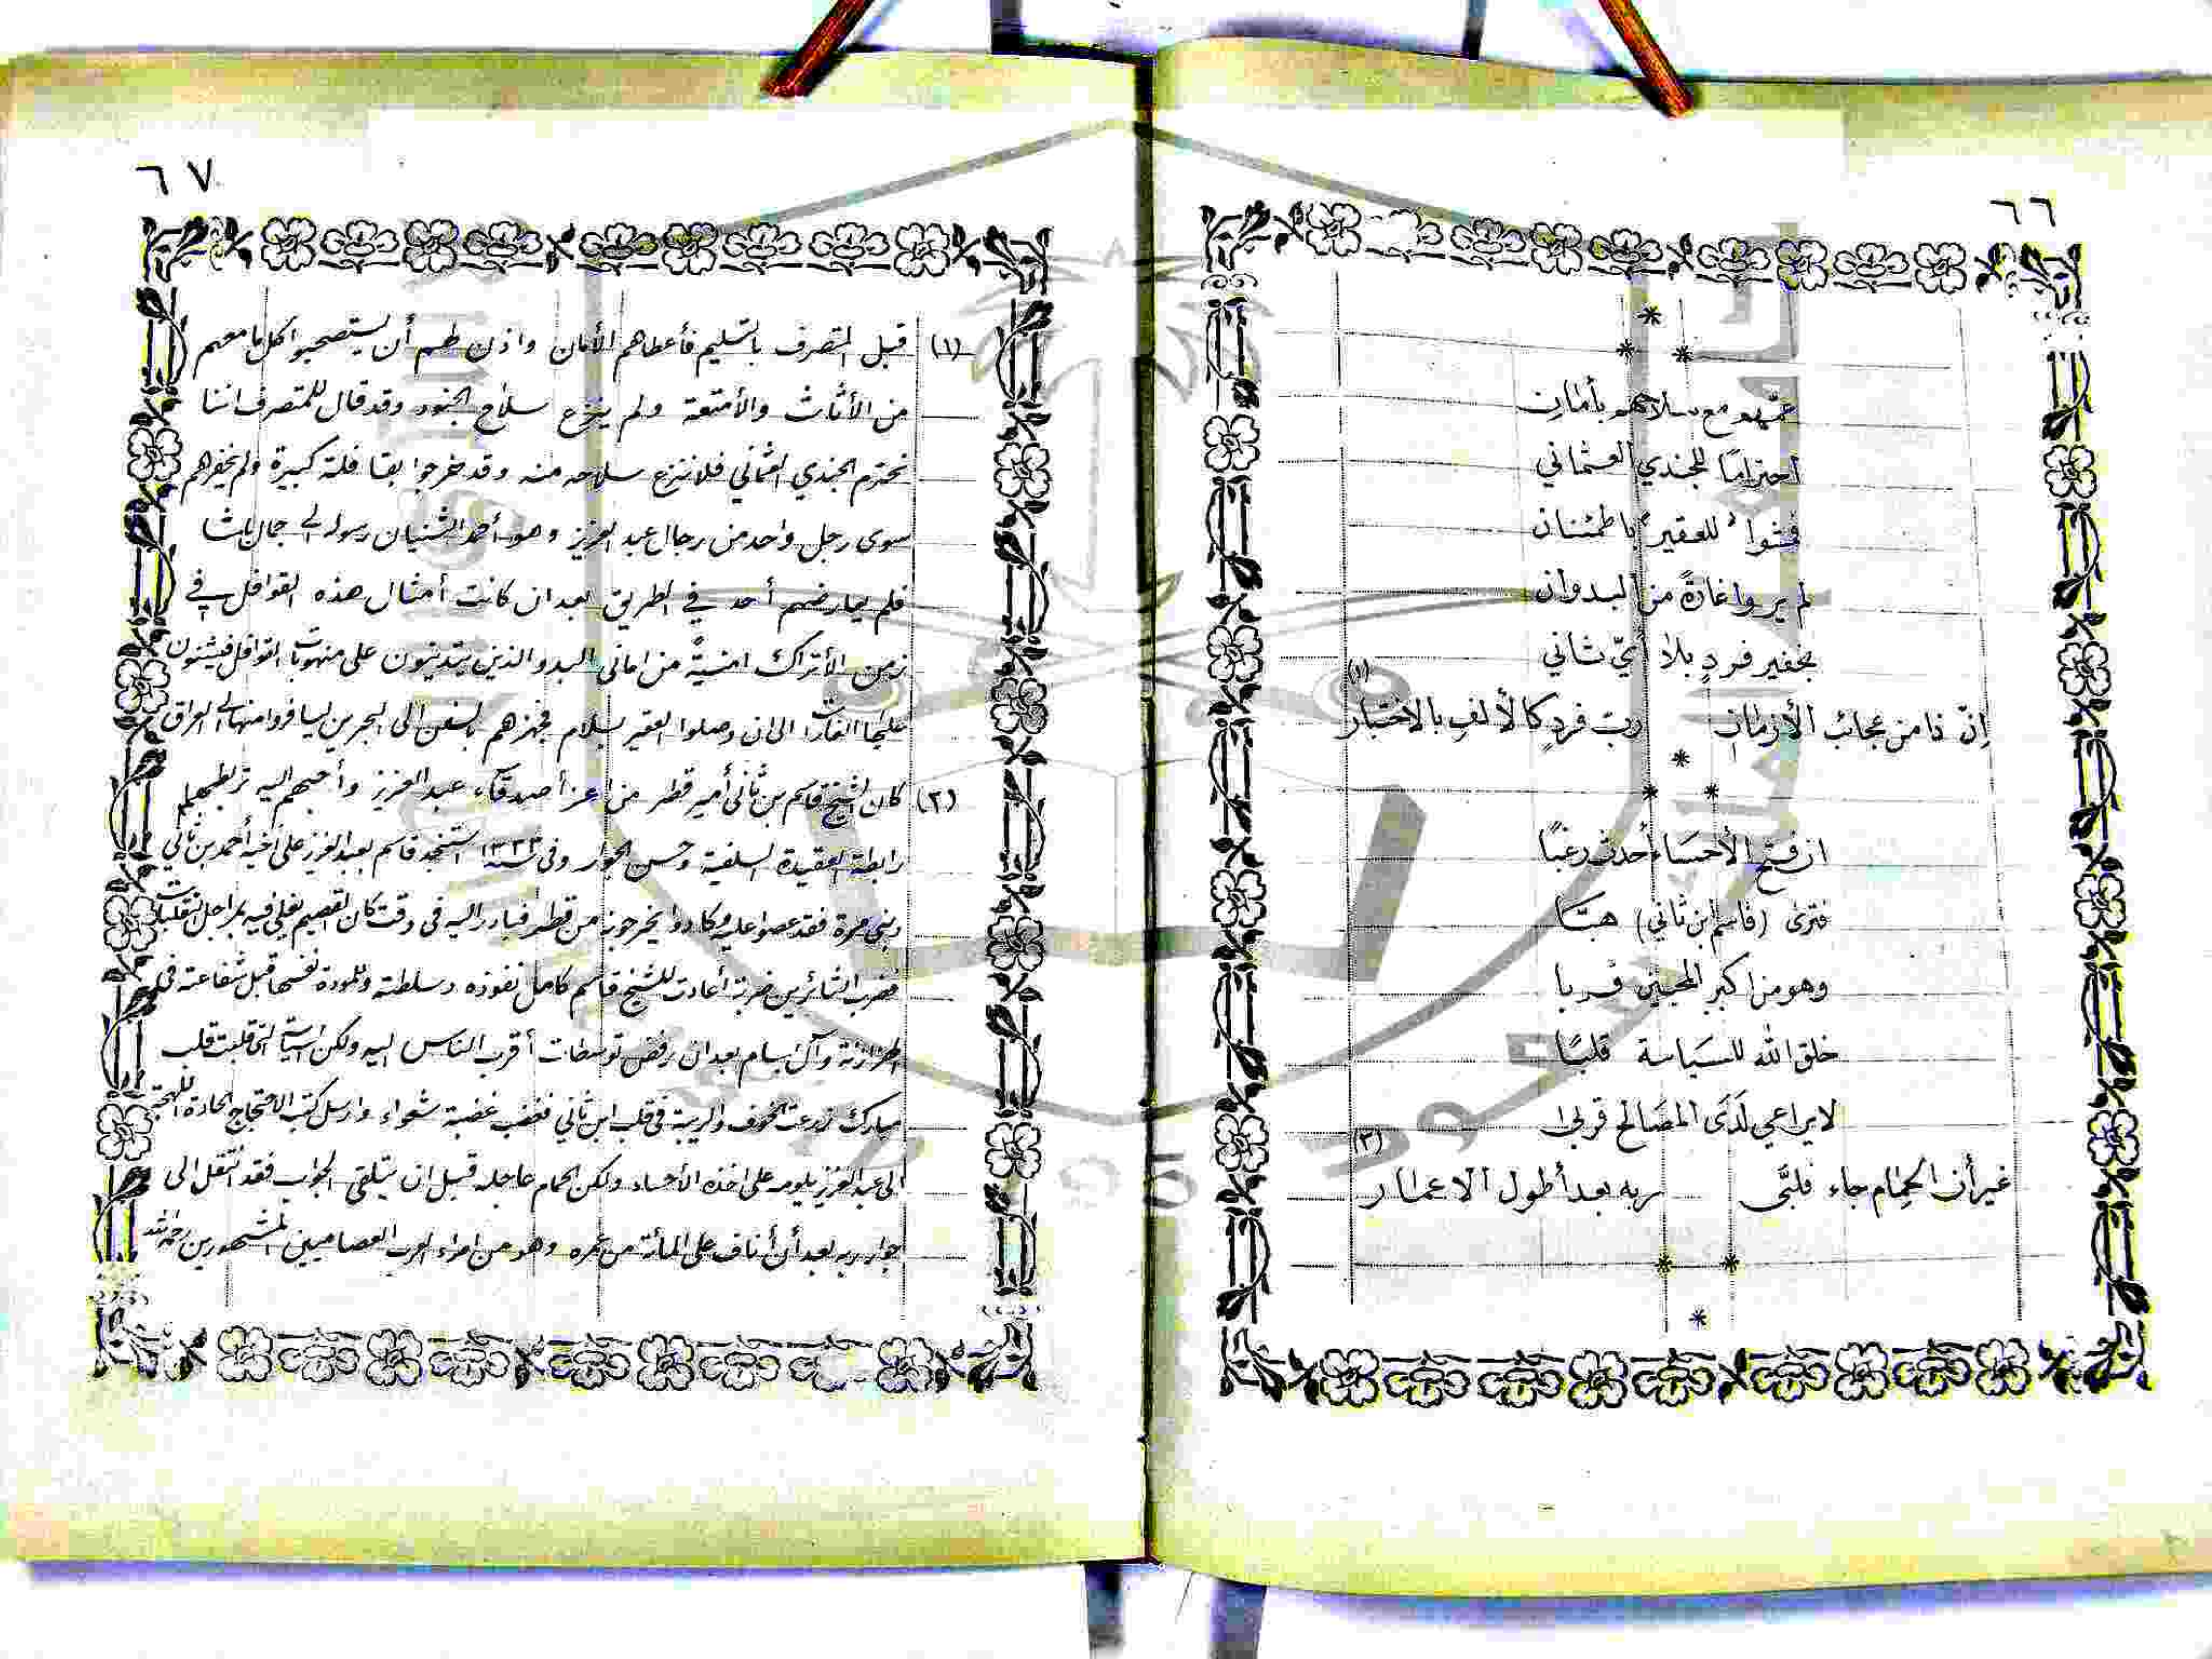 ٦٦
عنهمو مع سلاحهمو بأمان
احترامًا للجندي العثماني
فمشوا للعقير باطمئنان
لم يروا غارةً من البدوان
بخفير فردٍ بلا أيّ ثاني (١)
إنّ ذا من عجائب الأزمان ربّ فردٍ كالألفِ بالاختبار
ان فتح الأحساء أحدث رعبًا
فترى (قاسم ابن ثاني) هبّا
وهو من اكبر المحبين قربا
خلق الله للسياسة قلبًا
لا يراعي لَدَى المصَالح قربى (٢)
غير أن الحِمام جاء فلبَّى ربه بعد أطول الاعمار
٦٧
(١) قبل المتصرف بالتسليم فأعطاهم الأمان واذن لهم أن يستصحبوا كل ما معهم
من الأثاث والأمتعة ولم ينزع سلاح الجنود وقد قال للمتصرف اننا
نحترم الجندي العثماني فلا ننزع سلاحه منه وقد خرجوا بقافلة كبيرة ولم يخفرهم
سوى رجل واحد من رجال عبد العزيز وهو أحمد الثنيان رسوله الى جمال باشا
فلم يعارضهم أحد في الطريق بعد ان كانت أمثال هذه القوافل في
زمن الأتراك امنيةً من اماني البدو الذين يتدينون على منهوبات القوافل فيشنون
عليها الغارات الى ان وصلوا العقير بسلام فجهزهم بالسفن الى البحرين ليسافروا منها الى العراق
(٢) كان الشيخ قاسم بن ثاني أمير قطر من اعز أصدقاء عبد العزيز وأحبهم اليه تربطهما
رابطة العقيدة السلفية وحسن الجوار وفي سنة ١٣٢٣ استنجد قاسم بعبد العزيز على أخيه أحمد بن ثاني
وبني مرة فقد عصوا عليه وكادوا يخرجونه من قطر فبادر اليه في وقت كان القصيم يغلي فيه بمراجل التقلبات
فضرب الثائرين ضربة أعادت للشيخ قاسم كامل نفوذه وسلطته وللمودة نفسها قبل شفاعته في
وآل بسام بعد ان رفض توسطات أقرب الناس اليه ولكن السياسة التي قلبت قلب
مبارك زرعت الخوف والريبة في قلب ابن ثاني فغضب غضبة شعواء وارسل كتب الاحتجاج الحادة اللهجة
الى عبد العزيز يلومه على اخذه الأحساء ولكن الحمام عاجله قبل ان يتلقى الجواب فقد انتقل الى
جوار ربه بعد أن أناف على المائة من عمره وهو من امراء العرب العصاميين المشهورين رحمه الله